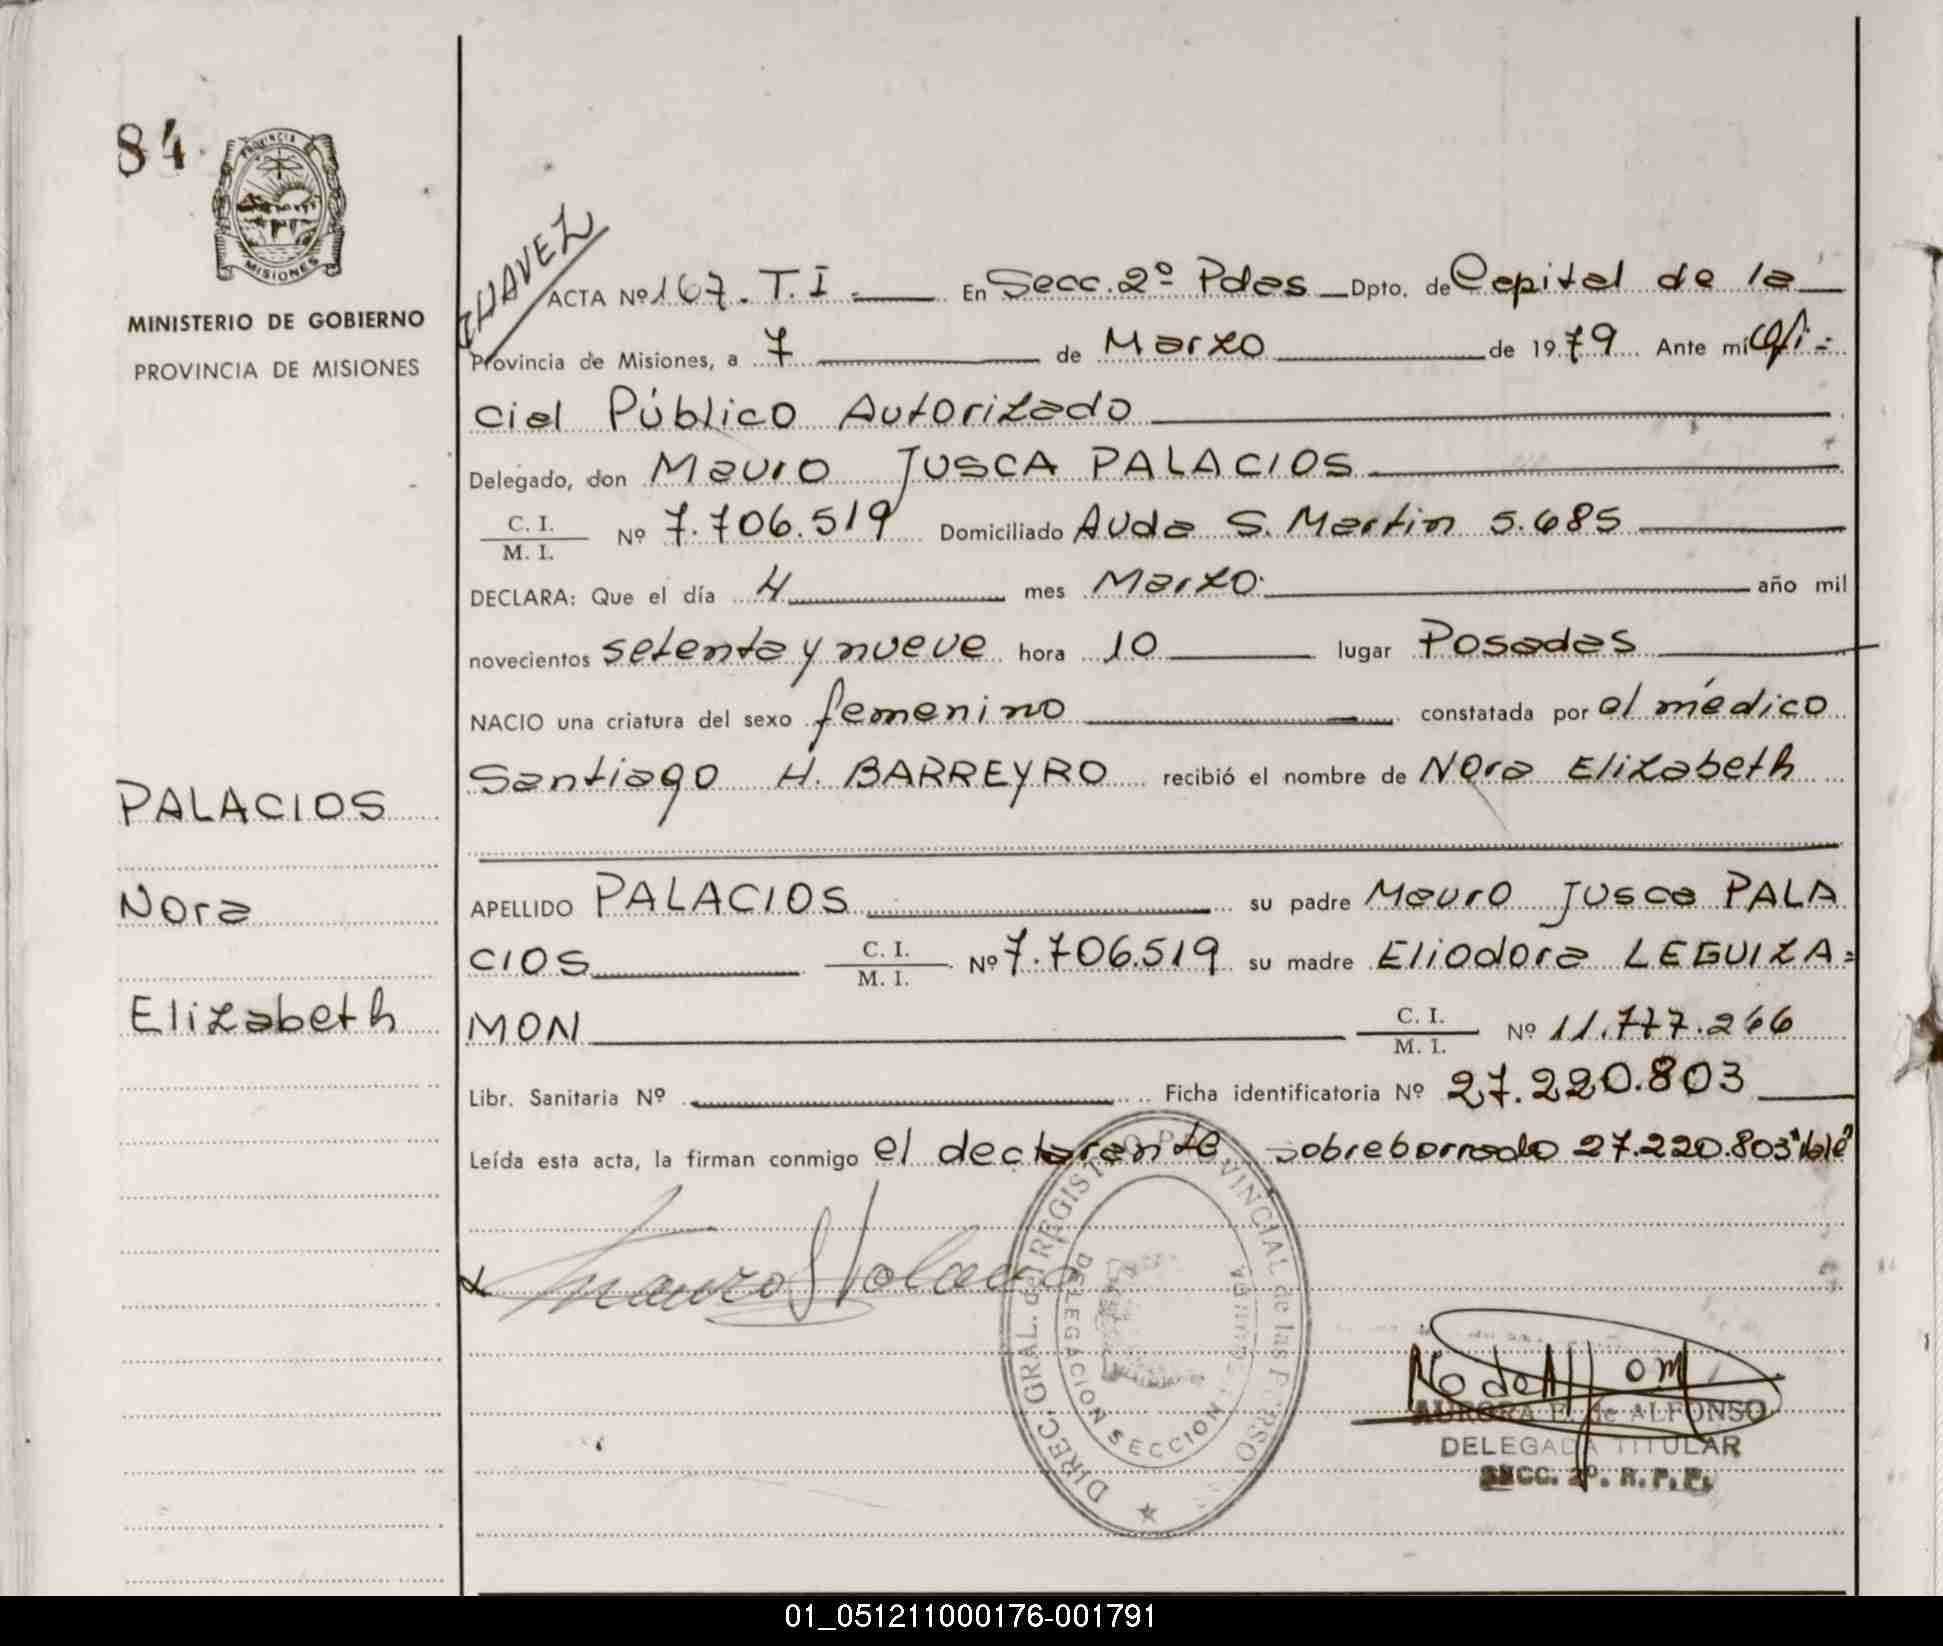 84
PROVINCIA
MISIONES
MINISTERIO DE GOBIERNO
PROVINCIA DE MISIONES
CHAVEZ
ACTA Nº 167. T. I. En Secc. 2º Pdas Dpto. de Capital de la
Provincia de Misiones, a 7 de Marzo de 1979 Ante mí Ofi-
cial Público Autorizado
Delegado, don Mauro JUSCA PALACIOS
C. I. / M. I. Nº 7.706.519 Domiciliado Avda S. Martin 5.685
DECLARA: Que el día 4 mes Marzo año mil
novecientos setenta y nueve hora 10 lugar Posadas
NACIO una criatura del sexo femenino constatada por el médico
Santiago H. BARREYRO recibió el nombre de Nora Elizabeth
PALACIOS
Nora
Elizabeth
APELLIDO PALACIOS su padre Mauro Jusca PALA
CIOS C. I. / M. I. Nº 7.706.519 su madre Eliodora LEGUIZA=
MON C. I. / M. I. Nº 11.777.266
Libr. Sanitaria Nº Ficha identificatoria Nº 27.220.803
Leída esta acta, la firman conmigo el declarante sobreborrado 27.220.803 "Vale"
DIREC. GRAL. del REGISTRO PROVINCIAL de las PERSO
DELEGACION SECCION
AURORA E. de ALFONSO
DELEGADA TITULAR
SECC. 2º. R. P. P.
01_051211000176-001791